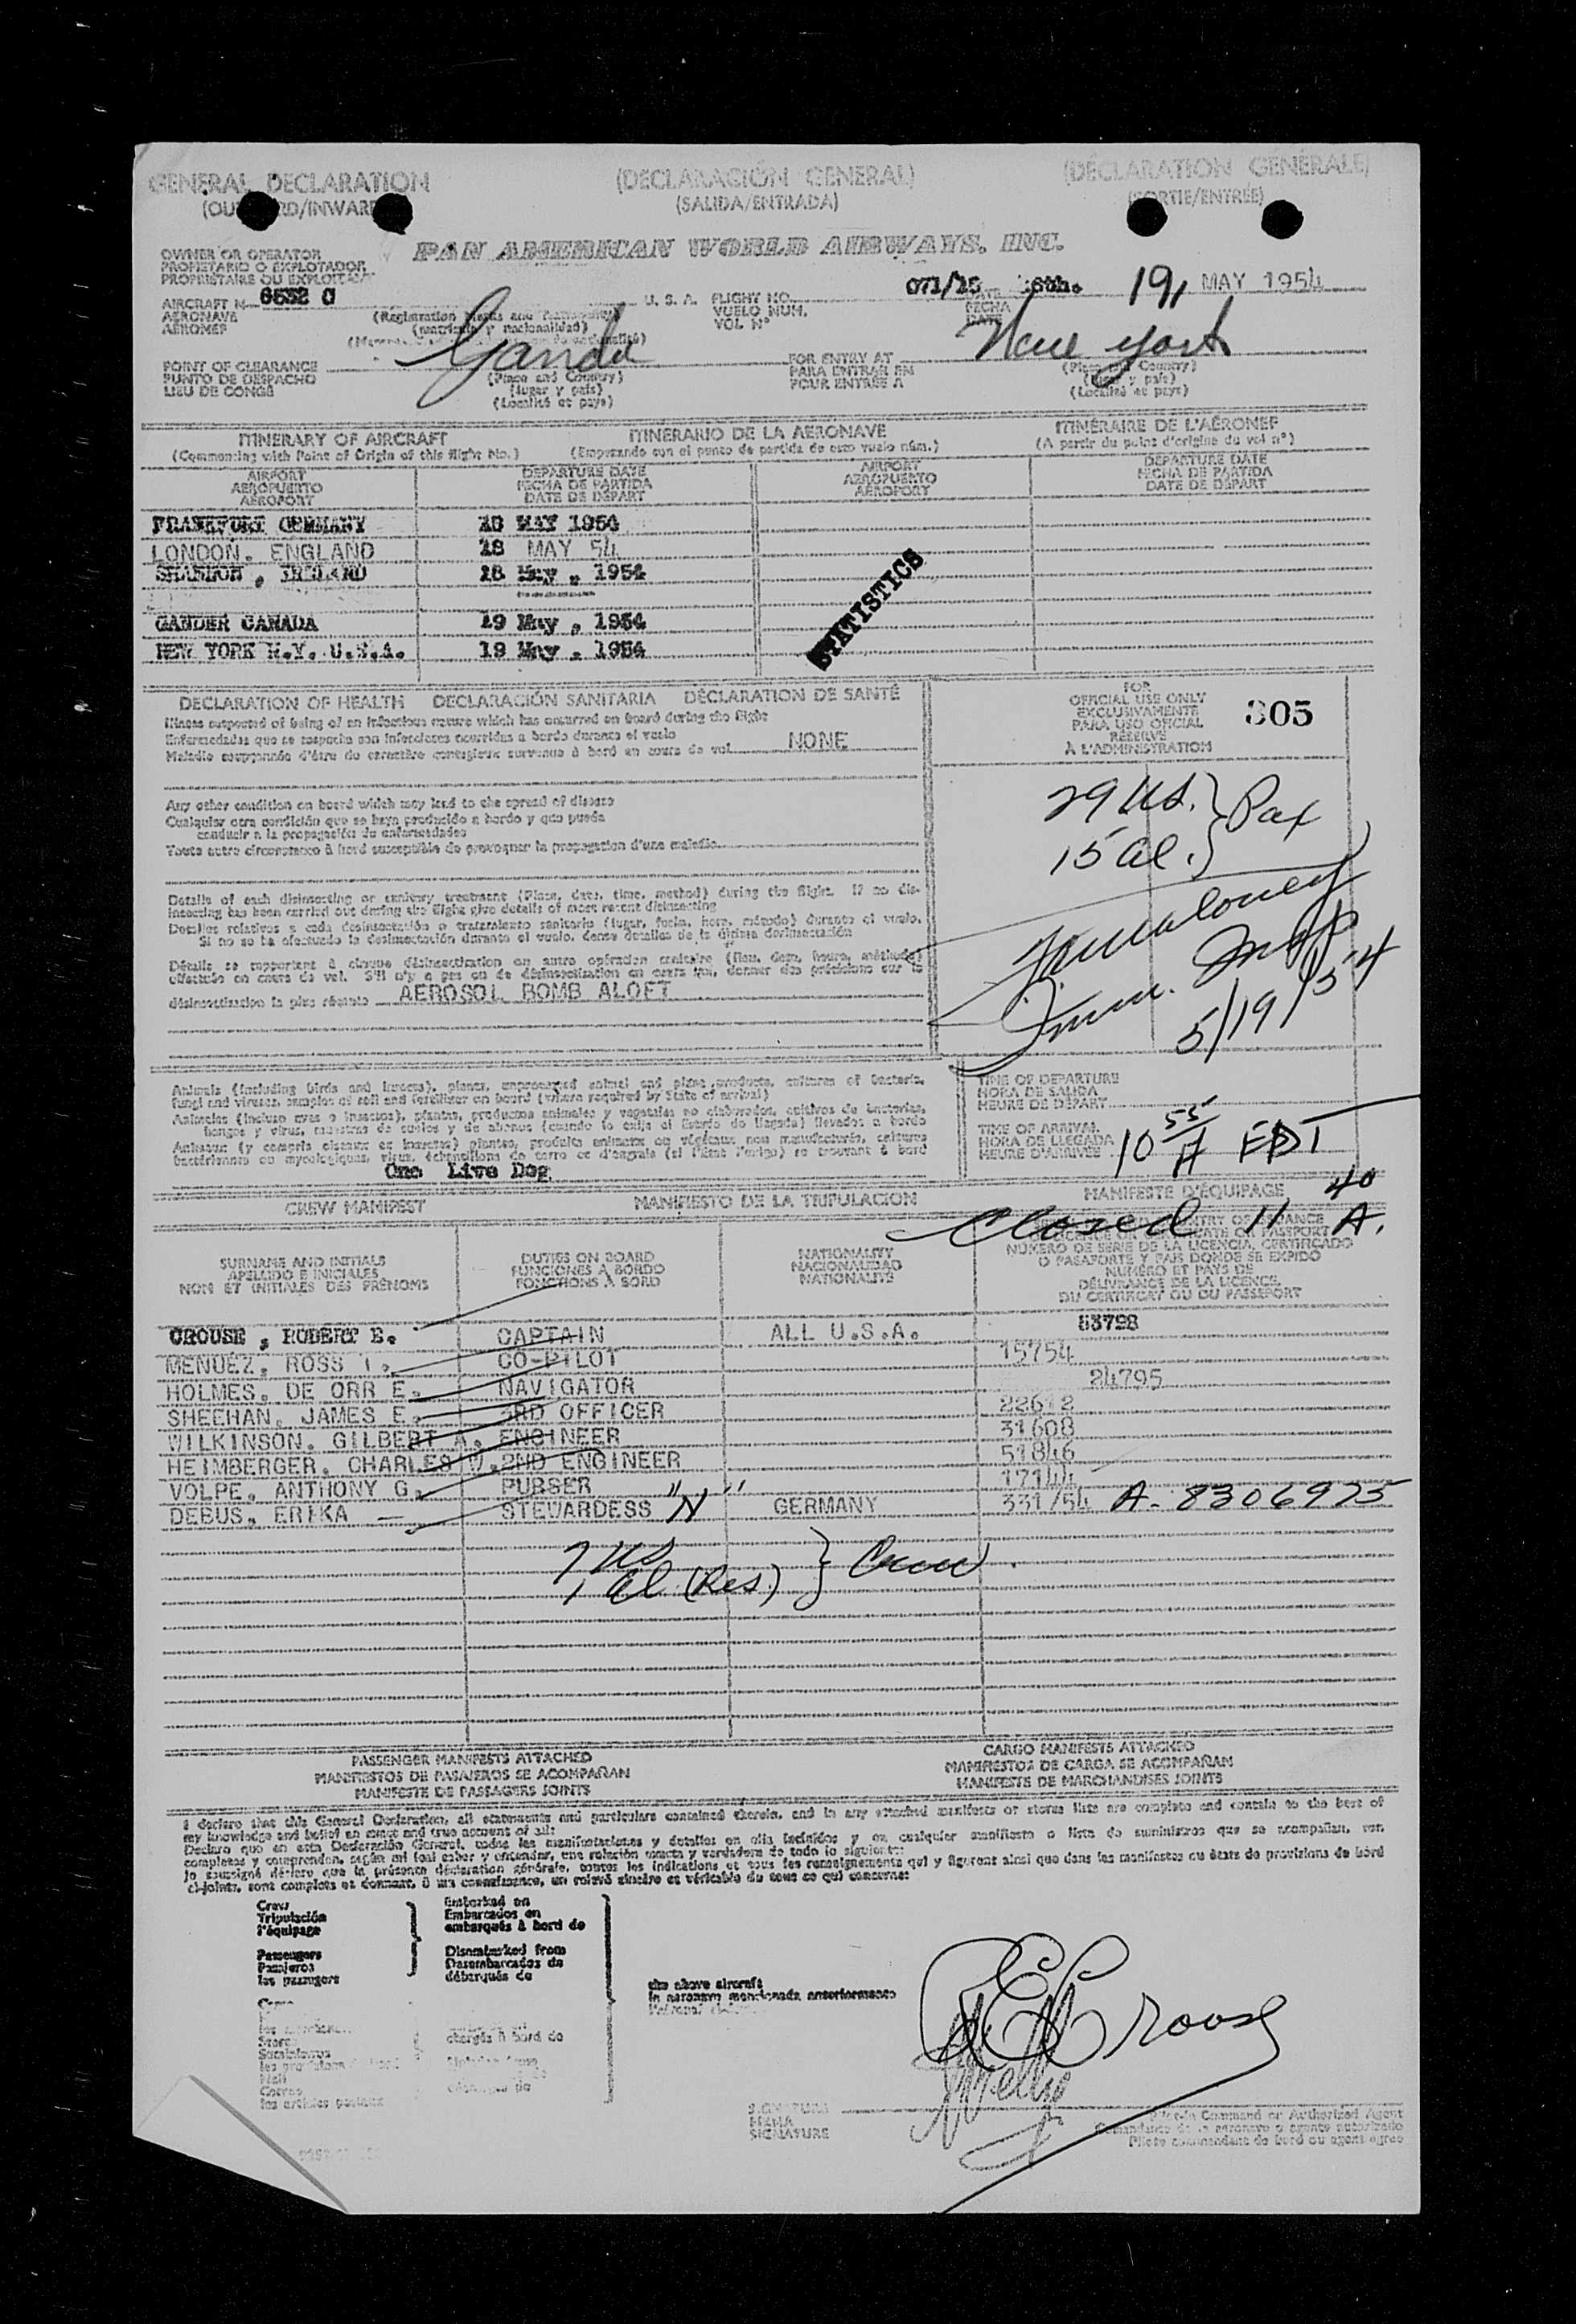 GENERAL DECLARATION (DECLARACIÓN GENERAL) (DÉCLARATION GÉNÉRALE)
(SALIDA/ENTRADA)
PAN AMERICAN WORLD AIRWAYS, INC.
OWNER OR OPERATOR
PROPIETARIO O EXPLOTADOR
PROPRIÉTAIRE OU EXPLOITANT
071/15 19 MAY 1954
AIRCRAFT N 6532 C U. S. A. FLIGHT NO.
AÉRONAVE VUELO NUM. FECHA
AÉRONEF VOL Nº DATE
POINT OF CLEARANCE FOR ENTRY AT New York
PUNTO DE DESPACHO (Place and Country) PARA ENTRAR EN
LIEU DE CONGÉ (lugar y país) POUR ENTRÉE À
(Localité et pays) (Localité et pays)
ITINERARY OF AIRCRAFT ITINERARIO DE LA AERONAVE ITINÉRAIRE DE L'AÉRONEF
(Commencing with Point of Origin of this flight No.) (Empezando con el punto de partida de este vuelo núm.) (A partir du point d'origine du vol nº)
AIRPORT DEPARTURE DATE AIRPORT DEPARTURE DATE
AEROPUERTO FECHA DE PARTIDA AEROPUERTO FECHA DE PARTIDA
AÉROPORT DATE DE DÉPART AÉROPORT DATE DE DÉPART
FRANKFURT GERMANY 18 MAY 1954
LONDON, ENGLAND 18 MAY 54
SHANNON, IRELAND 18 May, 1954
STATISTICS
GANDER CANADA 19 May, 1954
NEW YORK N.Y. U.S.A. 19 May, 1954
DECLARATION OF HEALTH DECLARACIÓN SANITARIA DÉCLARATION DE SANTÉ
FOR
OFFICIAL USE ONLY
EXCLUSIVAMENTE
PARA USO OFICIAL
RÉSERVÉ
À L'ADMINISTRATION
305
Illness suspected of being of an infectious nature which has occurred on board during the flight
Enfermedades que se sospecha son infecciosas ocurridas a bordo durante el vuelo
Maladie soupçonnée d'être de caractère contagieux survenue à bord en cours de vol NONE
Any other condition on board which may lead to the spread of disease
Cualquier otra condición que se haya producido a bordo y que pueda
conducir a la propagación de enfermedades
Toute autre circonstance à bord susceptible de provoquer la propagation d'une maladie
29 US. } Pax
15 Al. }
Details of each disinsecting or sanitary treatment (Place, date, time, method) during the flight. If no dis-
insecting has been carried out during the flight give details of most recent disinsecting
Detalles relativos a cada desinsectación o tratamiento sanitario (lugar, fecha, hora, método) durante el vuelo.
Si no se ha efectuado la desinsectación durante el vuelo, dense detalles de la última desinsectación
désinsectisation la plus récente AEROSOL BOMB ALOFT
Imm. Insp
5/19/54
Animals (including birds and insects), plants, unprocessed animal and plant products, cultures of bacteria,
fungi and viruses, samples of soil and fertilizer on board (where required by State of arrival)
One Live Dog
TIME OF DEPARTURE
HORA DE SALIDA
HEURE DE DÉPART
TIME OF ARRIVAL
HORA DE LLEGADA
HEURE D'ARRIVÉE 10 55 A EDT
CREW MANIFEST MANIFIESTO DE LA TRIPULACION MANIFESTE D'ÉQUIPAGE
Closed 11 40 A.
SURNAME AND INITIALS DUTIES ON BOARD NATIONALITY
APELLIDO E INICIALES FUNCIONES A BORDO NACIONALIDAD
NOM ET INITIALES DES PRÉNOMS FONCTIONS À BORD NATIONALITÉ
NÚMERO DE SERIE DE LA LICENCIA, CERTIFICADO
O PASAPORTE Y PAIS DONDE SE EXPIDIÓ
NUMÉRO ET PAYS DE
DÉLIVRANCE DE LA LICENCE,
DU CERTIFICAT OU DU PASSEPORT
CROUSE, ROBERT E. CAPTAIN ALL U.S.A. 53798
MENDEZ, ROSS I. CO-PILOT 15754
HOLMES, DE ORR E. NAVIGATOR 24795
SHEEHAN, JAMES E. 3RD OFFICER 22612
WILKINSON, GILBERT A. ENGINEER 31608
HEIMBERGER, CHARLES W. 2ND ENGINEER 51846
VOLPE, ANTHONY G. PURSER 17144
DEBUS, ERIKA STEWARDESS "N" GERMANY 331/54 A-8306925
7 US } Crew
1 Al. (Res)
PASSENGER MANIFESTS ATTACHED CARGO MANIFESTS ATTACHED
MANIFIESTOS DE PASAJEROS SE ACOMPAÑAN MANIFIESTOS DE CARGA SE ACOMPAÑAN
MANIFESTE DE PASSAGERS JOINTS MANIFESTE DE MARCHANDISES JOINTS
I declare that this General Declaration, all statements and particulars contained therein, and in any attached manifests or stores lists are complete and contain to the best of
my knowledge and belief an exact and true account of all:
Declaro que en esta Declaración General, todas las manifestaciones y detalles en ella incluidos y en cualquier manifiesto o lista de suministros que se acompañan, son
completos y comprenden, según mi leal saber y entender, una relación exacta y verdadera de todo lo siguiente:
Je soussigné déclare que la présente déclaration générale, toutes les indications et tous les renseignements qui y figurent ainsi que dans les manifestes ou états de provisions de bord
ci-joints, sont complets et donnent, à ma connaissance, un relevé sincère et véritable de tous ce qui concerne:
Crew Embarked on
Tripulación Embarcados en
l'équipage embarqués à bord de
Passengers Disembarked from
Pasajeros Desembarcados de
les passagers débarqués de
the above aircraft
la aeronave mencionada anteriormente
chargés à bord de
Stores
Suministros
Mail
Correo
R E Crouse
SIGNATURE
FIRMA
SIGNATURE
Pilot-in Command or Authorized Agent
Comandante de la aeronave o agente autorizado
Pilote commandant de bord ou agent agréé